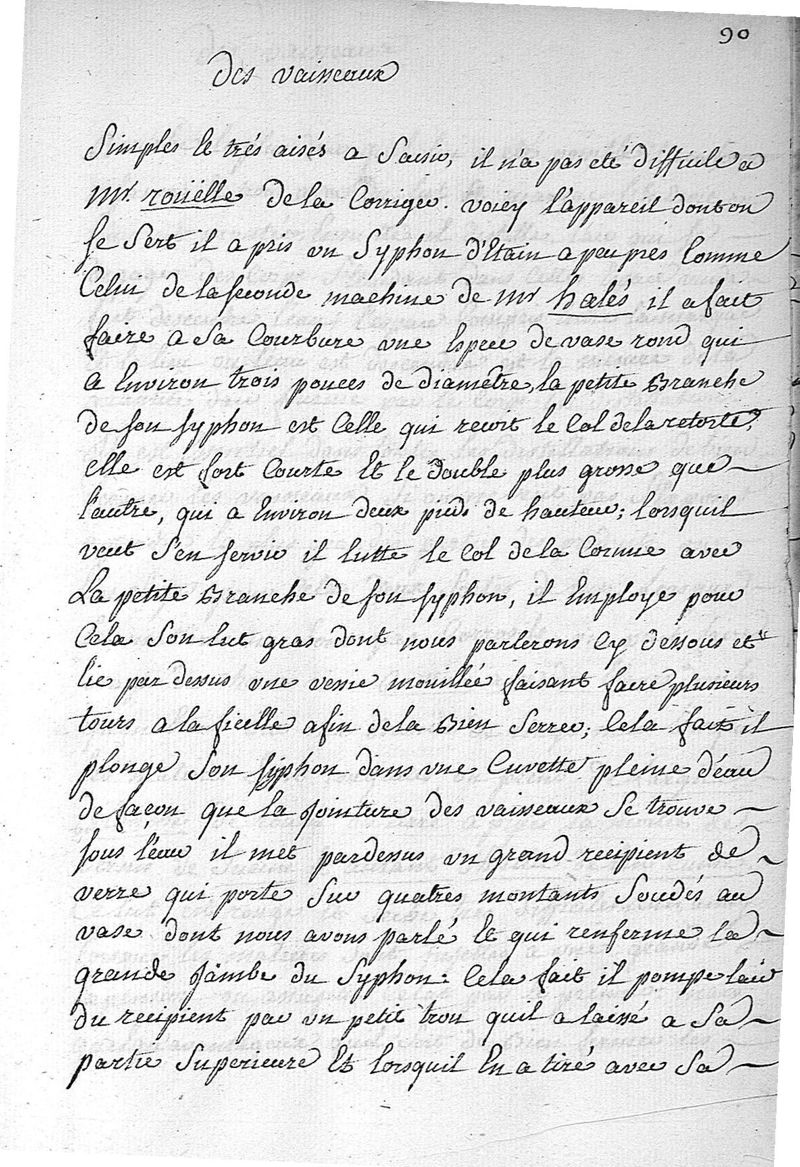 90
Des vaisseaux
Simples et trés aisés a Saisir, il n'a pas eté difficile a
Mr. roüelle de la Corriger. voicy l'appareil dont on
se Sert il a pris un Syphon d'Etain a peu pres Comme
Celui de la seconde machine de Mr halés il a fait
faire a Sa Courbure une Espece de vase rond qui
a Environ trois pouces de diamêtre, la petite Branche
de son syphon est Celle qui recoit le Col de la retorte,
elle est fort Courte Et le double plus grosse que
l'autre, qui a Environ deux pieds de hauteur; lorsquil
veut s'en servir il lutte le Col de la Cornue avec
La petite Branche de son syphon, il Employe pour
Cela Son lut gras dont nous parlerons Cy dessous et
lie par dessus une vessie mouillée faisant faire plusieurs
tours a la ficelle afin de la Bien Serrer; Cela fait il
plonge Son syphon dans une Cuvette pleine d'eau
de façon que la Jointure des vaisseaux Se trouve
sous l'eau il met pardessus un grand recipient de
verre qui porte Sur quatres montants Soudés au
vase dont nous avons parlé Et qui renferme la
grande Jambe du Syphon: Cela fait il pompe lair
du recipient par un petit trou quil a laissé a Sa
partie Superieure Et lorsquil En a tiré avec Sa